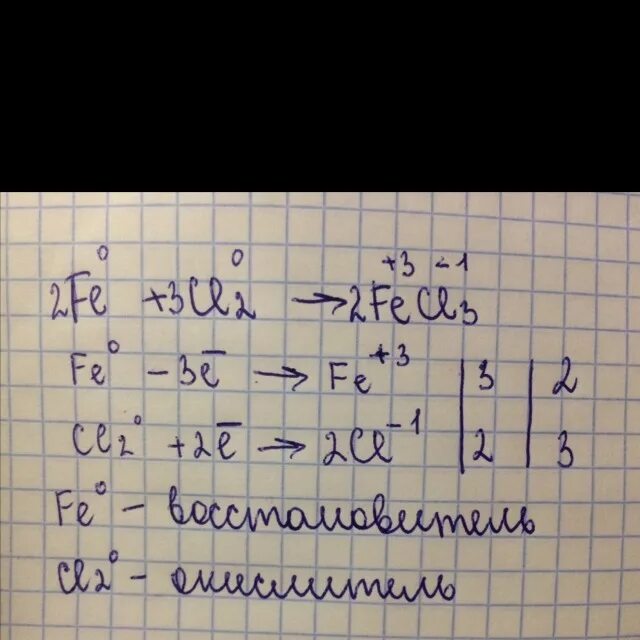 2Fe⁰ + 3Cl₂⁰ → 2Fe⁺³Cl₃⁻¹
Fe⁰ − 3e̅ → Fe⁺³ | 3 | 2
Cl₂⁰ + 2e̅ → 2Cl⁻¹ | 2 | 3
Fe⁰ − восстановитель
Cl2⁰ − окислитель